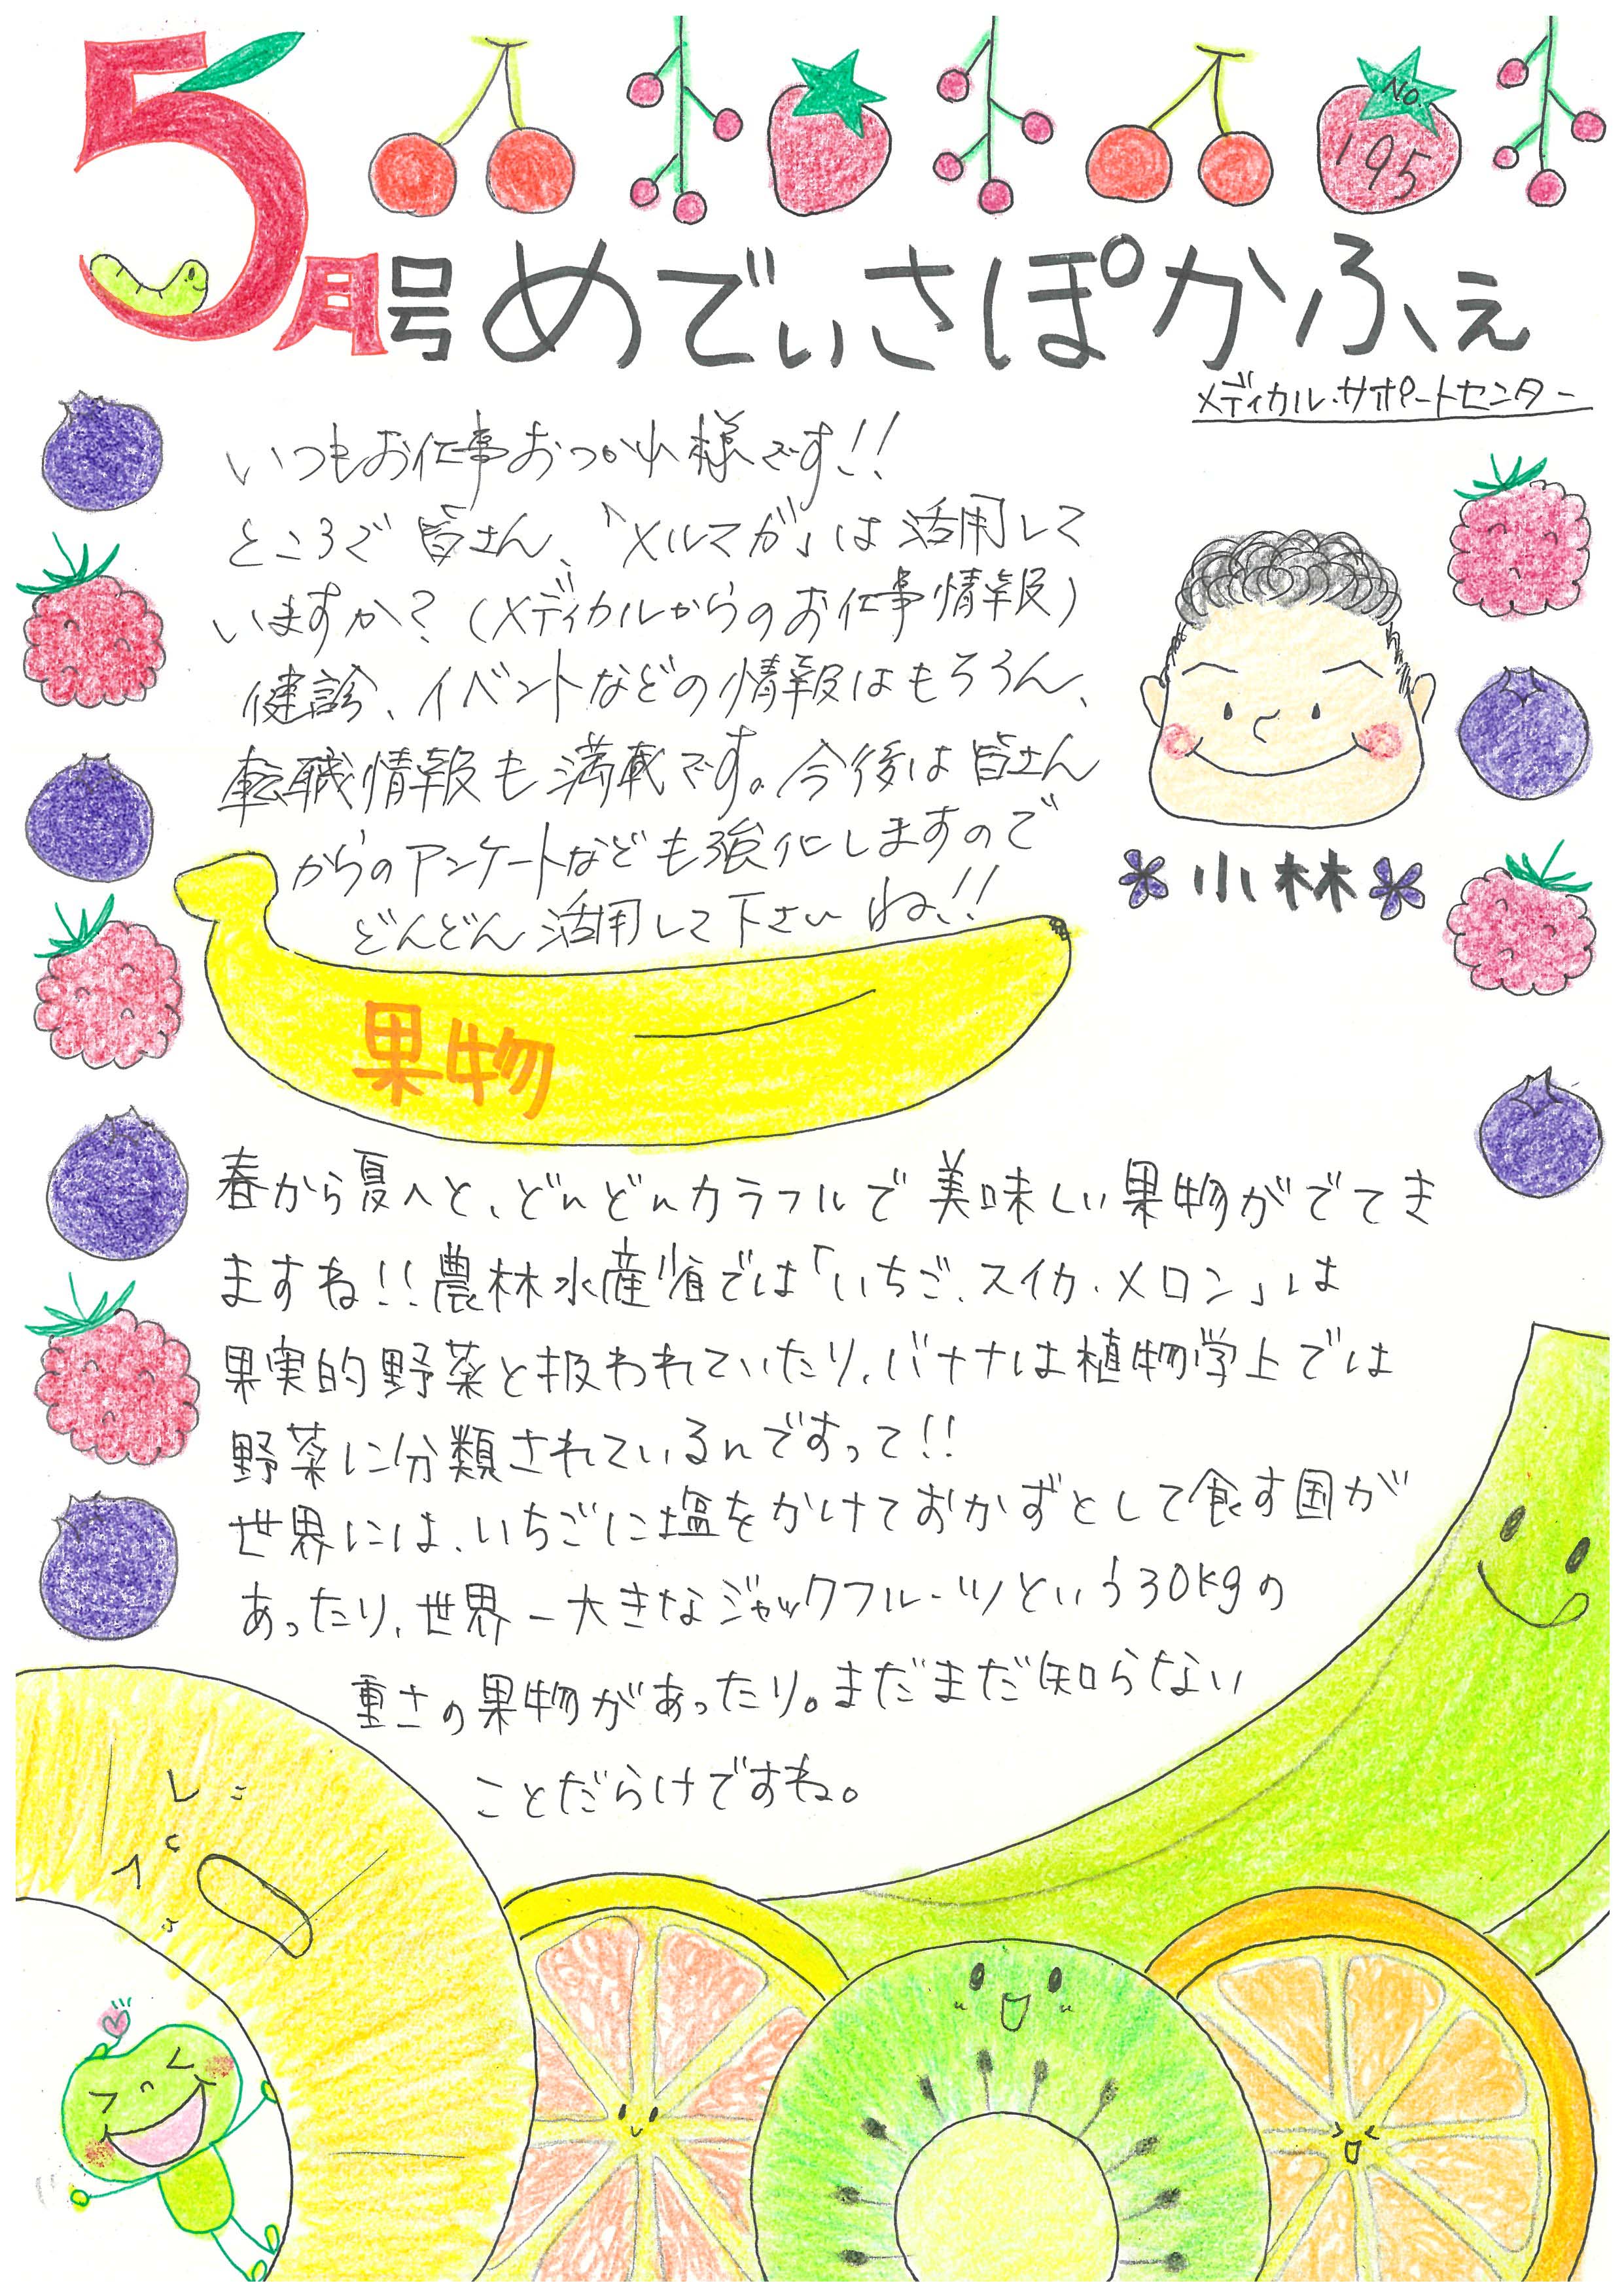 No.
195
5月号 めでぃさぽかふぇ
メディカル・サポートセンター
いつもお仕事おつかれ様です!!
ところで皆さん、「メルマガ」は活用して
いますか?(メディカルからのお仕事情報)
健診、イベントなどの情報はもちろん、
転職情報も満載です。今後は皆さん
からのアンケートなども強化しますので
どんどん活用して下さいね!!
小林
果物
春から夏へと、どんどんカラフルで美味しい果物がでてき
ますね!!農林水産省では「いちご、スイカ、メロン」は
果実的野菜と扱われていたり、バナナは植物学上では
野菜に分類されているんですって!!
世界には、いちごに塩をかけておかずとして食す国が
あったり、世界一大きなジャックフルーツという30kgの
重さの果物があったり。まだまだ知らない
ことだらけですね。